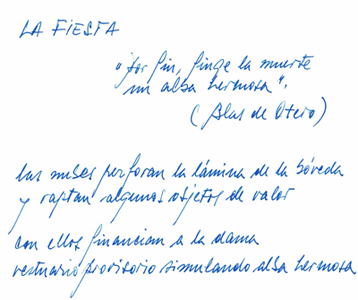 LA FIESTA
"Por fin, finge la muerte
un alba hermosa".
(Blas de Otero)
las nubes perforan la lámina de la bóveda
y raptan algunos objetos de valor
con ellos financian a la dama
vestuario provisorio simulando alba hermosa